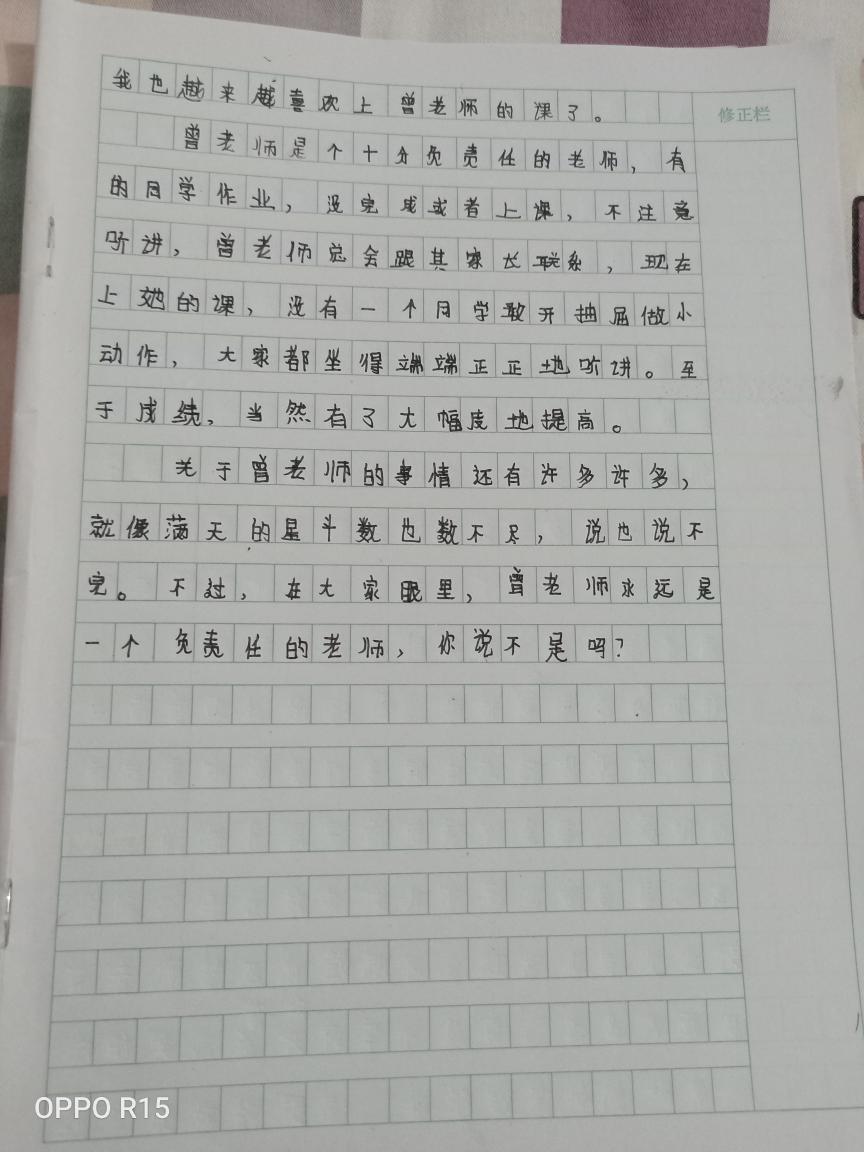 我也越来越喜欢上曾老师的课了。
修正栏
曾老师是个十分负责任的老师，有
的同学作业，没完成或者上课，不注意
听讲，曾老师总会跟其家长联系，现在
上她的课，没有一个同学敢开抽屉做小
动作，大家都坐得端端正正地听讲。至
于成绩，当然有了大幅度地提高。
关于曾老师的事情还有许多许多，
就像满天的星斗数也数不尽，说也说不
完。不过，在大家眼里，曾老师永远是
一个负责任的老师，你说不是吗？
OPPO R15